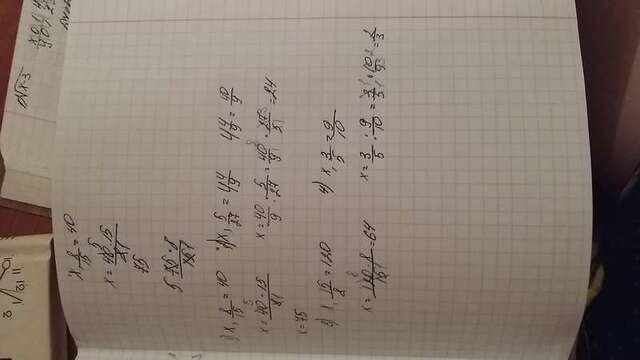 x · 8/15 = 40
x = 40 · 15 / 8
75
5 75 · 8 / 15
1) x · 8/15 = 40
x = 40 · 15 / 8
x = 75
2) x · 5/27 = 4 4/9
4 4/9 = 40/9
x = 40/9 : 5/27 = 40/9 · 27/5 = 24
3) x · 15/8 = 120
x = 120 · 8 / 15 = 64
4) x · 3/5 = 9/10
x = 3/5 : 9/10 = 3/5 · 10/9 = 2/3